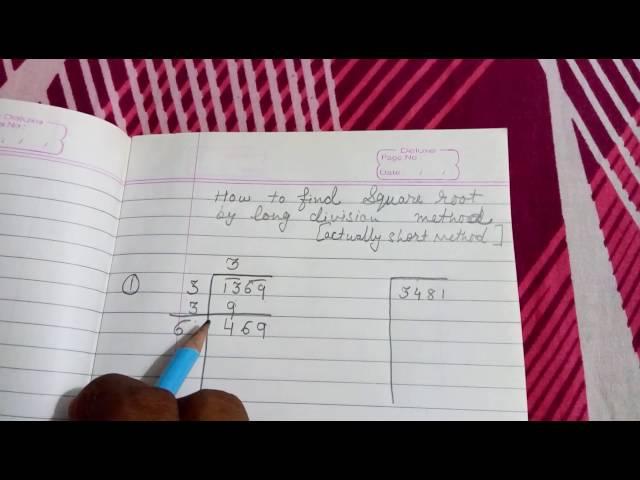 Deluxe
Page No
Date / /
How to find Square root
by long division method
[actually short method]
3
① 3 1369 3481
3 9
6 469